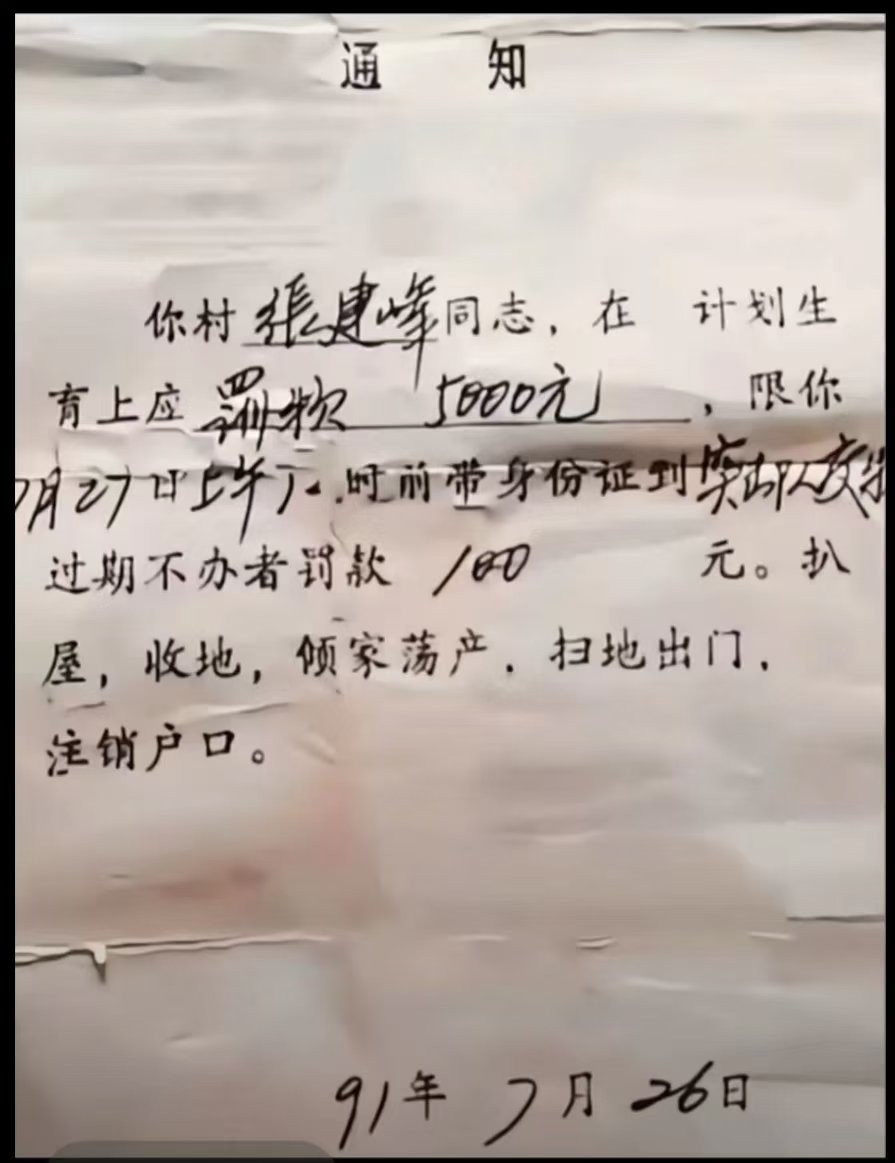 通 知
你村张建峰同志，在 计划生
育上应罚款 5000元，限你
7月27日上午 时前带身份证到突击队交
过期不办者罚款 100 元。扒
屋，收地，倾家荡产．扫地出门，
注销户口。
91年 7月 26日